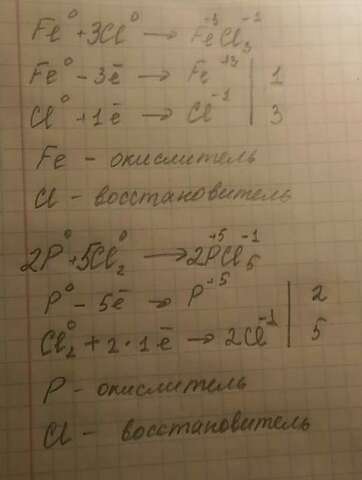 Fe⁰ + 3Cl⁰ → Fe⁺³Cl₃⁻¹
Fe⁰ - 3ē → Fe⁺³ | 1
Cl⁰ + 1ē → Cl⁻¹ | 3
Fe - окислитель
Cl - восстановитель
2P⁰ + 5Cl₂⁰ → 2P⁺⁵Cl₅⁻¹
P⁰ - 5ē → P⁺⁵ | 2
Cl₂⁰ + 2·1ē → 2Cl⁻¹ | 5
P - окислитель
Cl - восстановитель